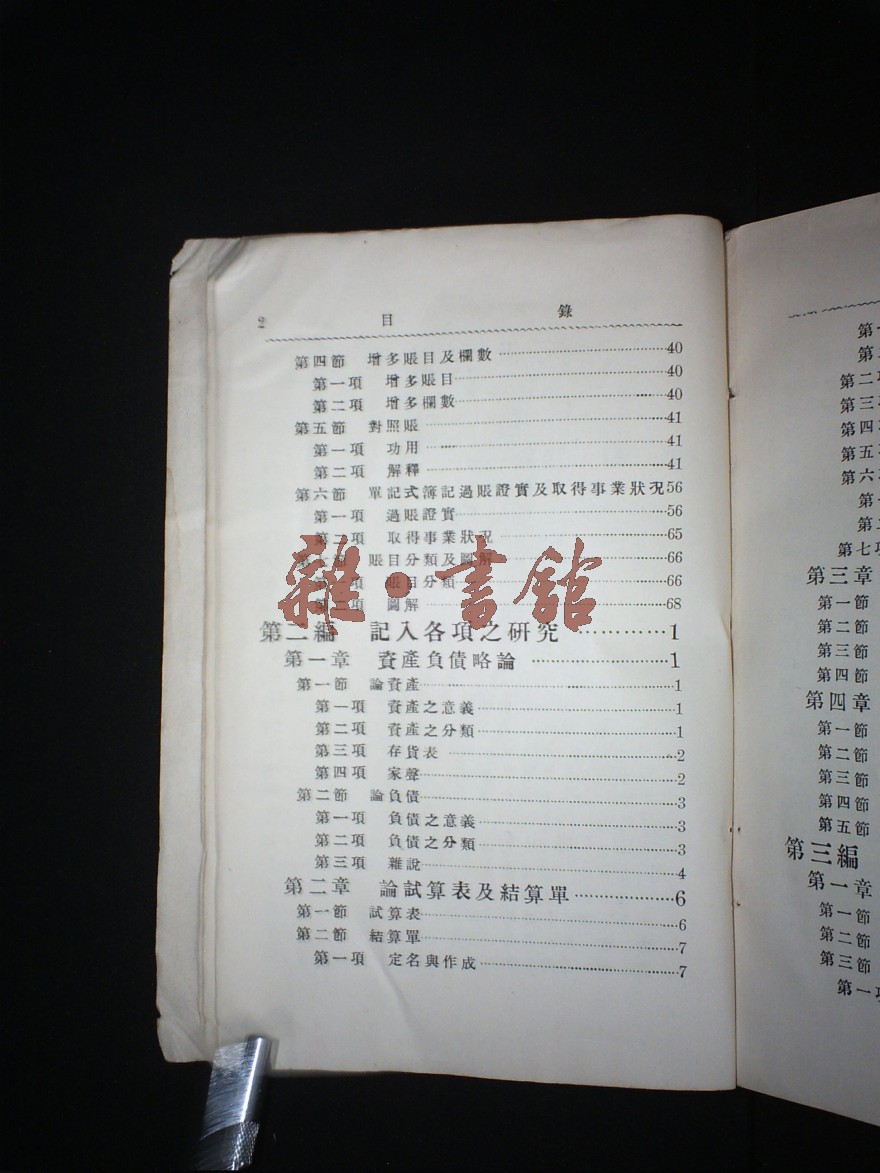 2 目 錄
第四節 增多賬目及欄數 40
第一項 增多賬目 40
第二項 增多欄數 40
第五節 對照賬 41
第一項 功用 41
第二項 解釋 41
第六節 單記式簿記過賬證實及取得事業狀況 56
第一項 過賬證實 56
第二項 取得事業狀況 65
第七節 賬目分類及圖解 66
第一項 賬目分類 66
第二項 圖解 68
雜·書館
第二編 記入各項之研究 1
第一章 資產負債略論 1
第一節 論資產 1
第一項 資產之意義 1
第二項 資產之分類 1
第三項 存貨表 2
第四項 家聲 2
第二節 論負債 3
第一項 負債之意義 3
第二項 負債之分類 3
第三項 雜說 4
第二章 論試算表及結算單 6
第一節 試算表 6
第二節 結算單 7
第一項 定名與作成 7
第二
第三項
第四
第五
第六
第七項
第三章
第一節
第二節
第三節
第四節
第四章
第一節
第二節
第三節
第四節
第五節
第三編
第一章
第一節
第二節
第三節
第一項